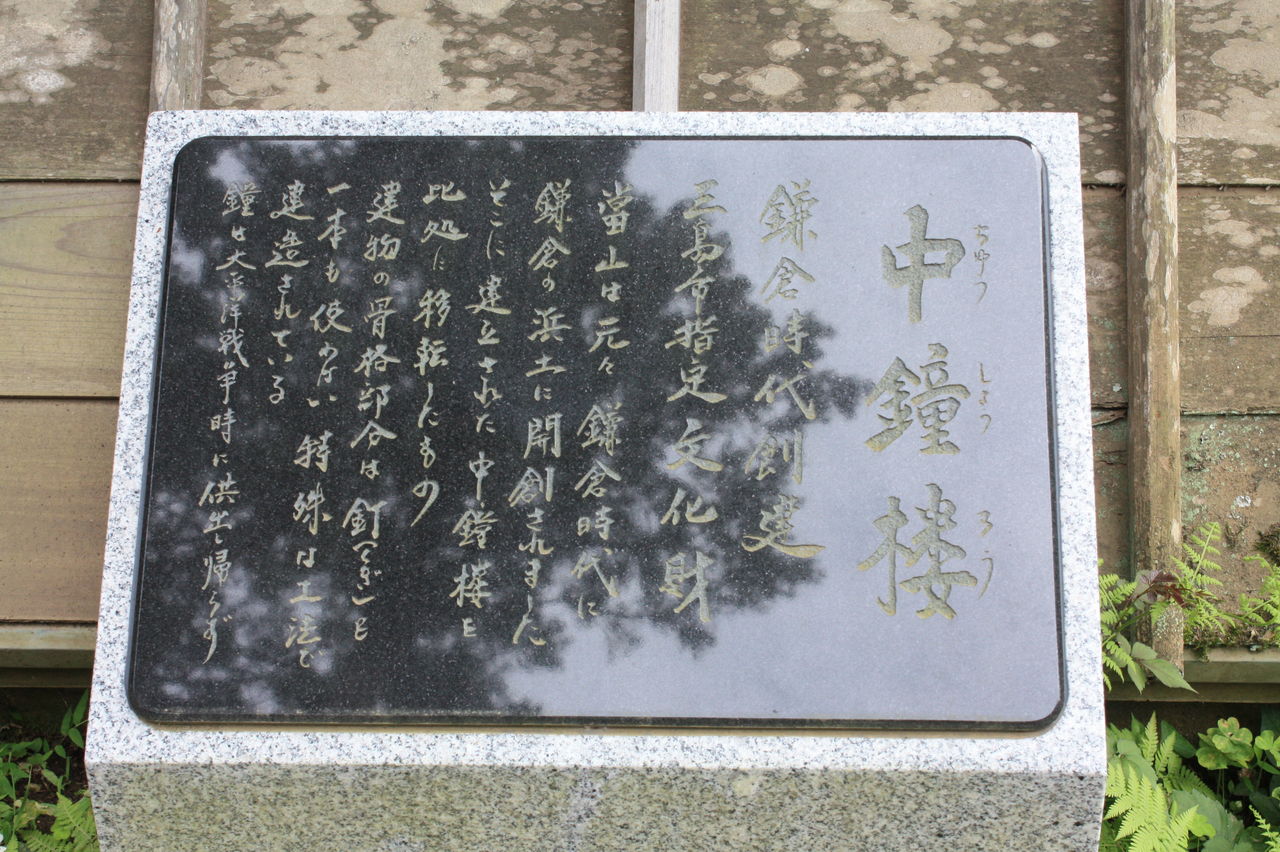 中鐘楼
ちゆう しょう ろう
鎌倉時代創建
三島市指定文化財
當山は元々 鎌倉時代に
鎌倉の浜土に開創されました
そこに建立された中鐘楼を
此処に移転したもの
建物の骨格部分は釘(くぎ)を
一本も使わない特殊な工法で
建造されている
鐘は太平洋戦争時に供出し帰らず